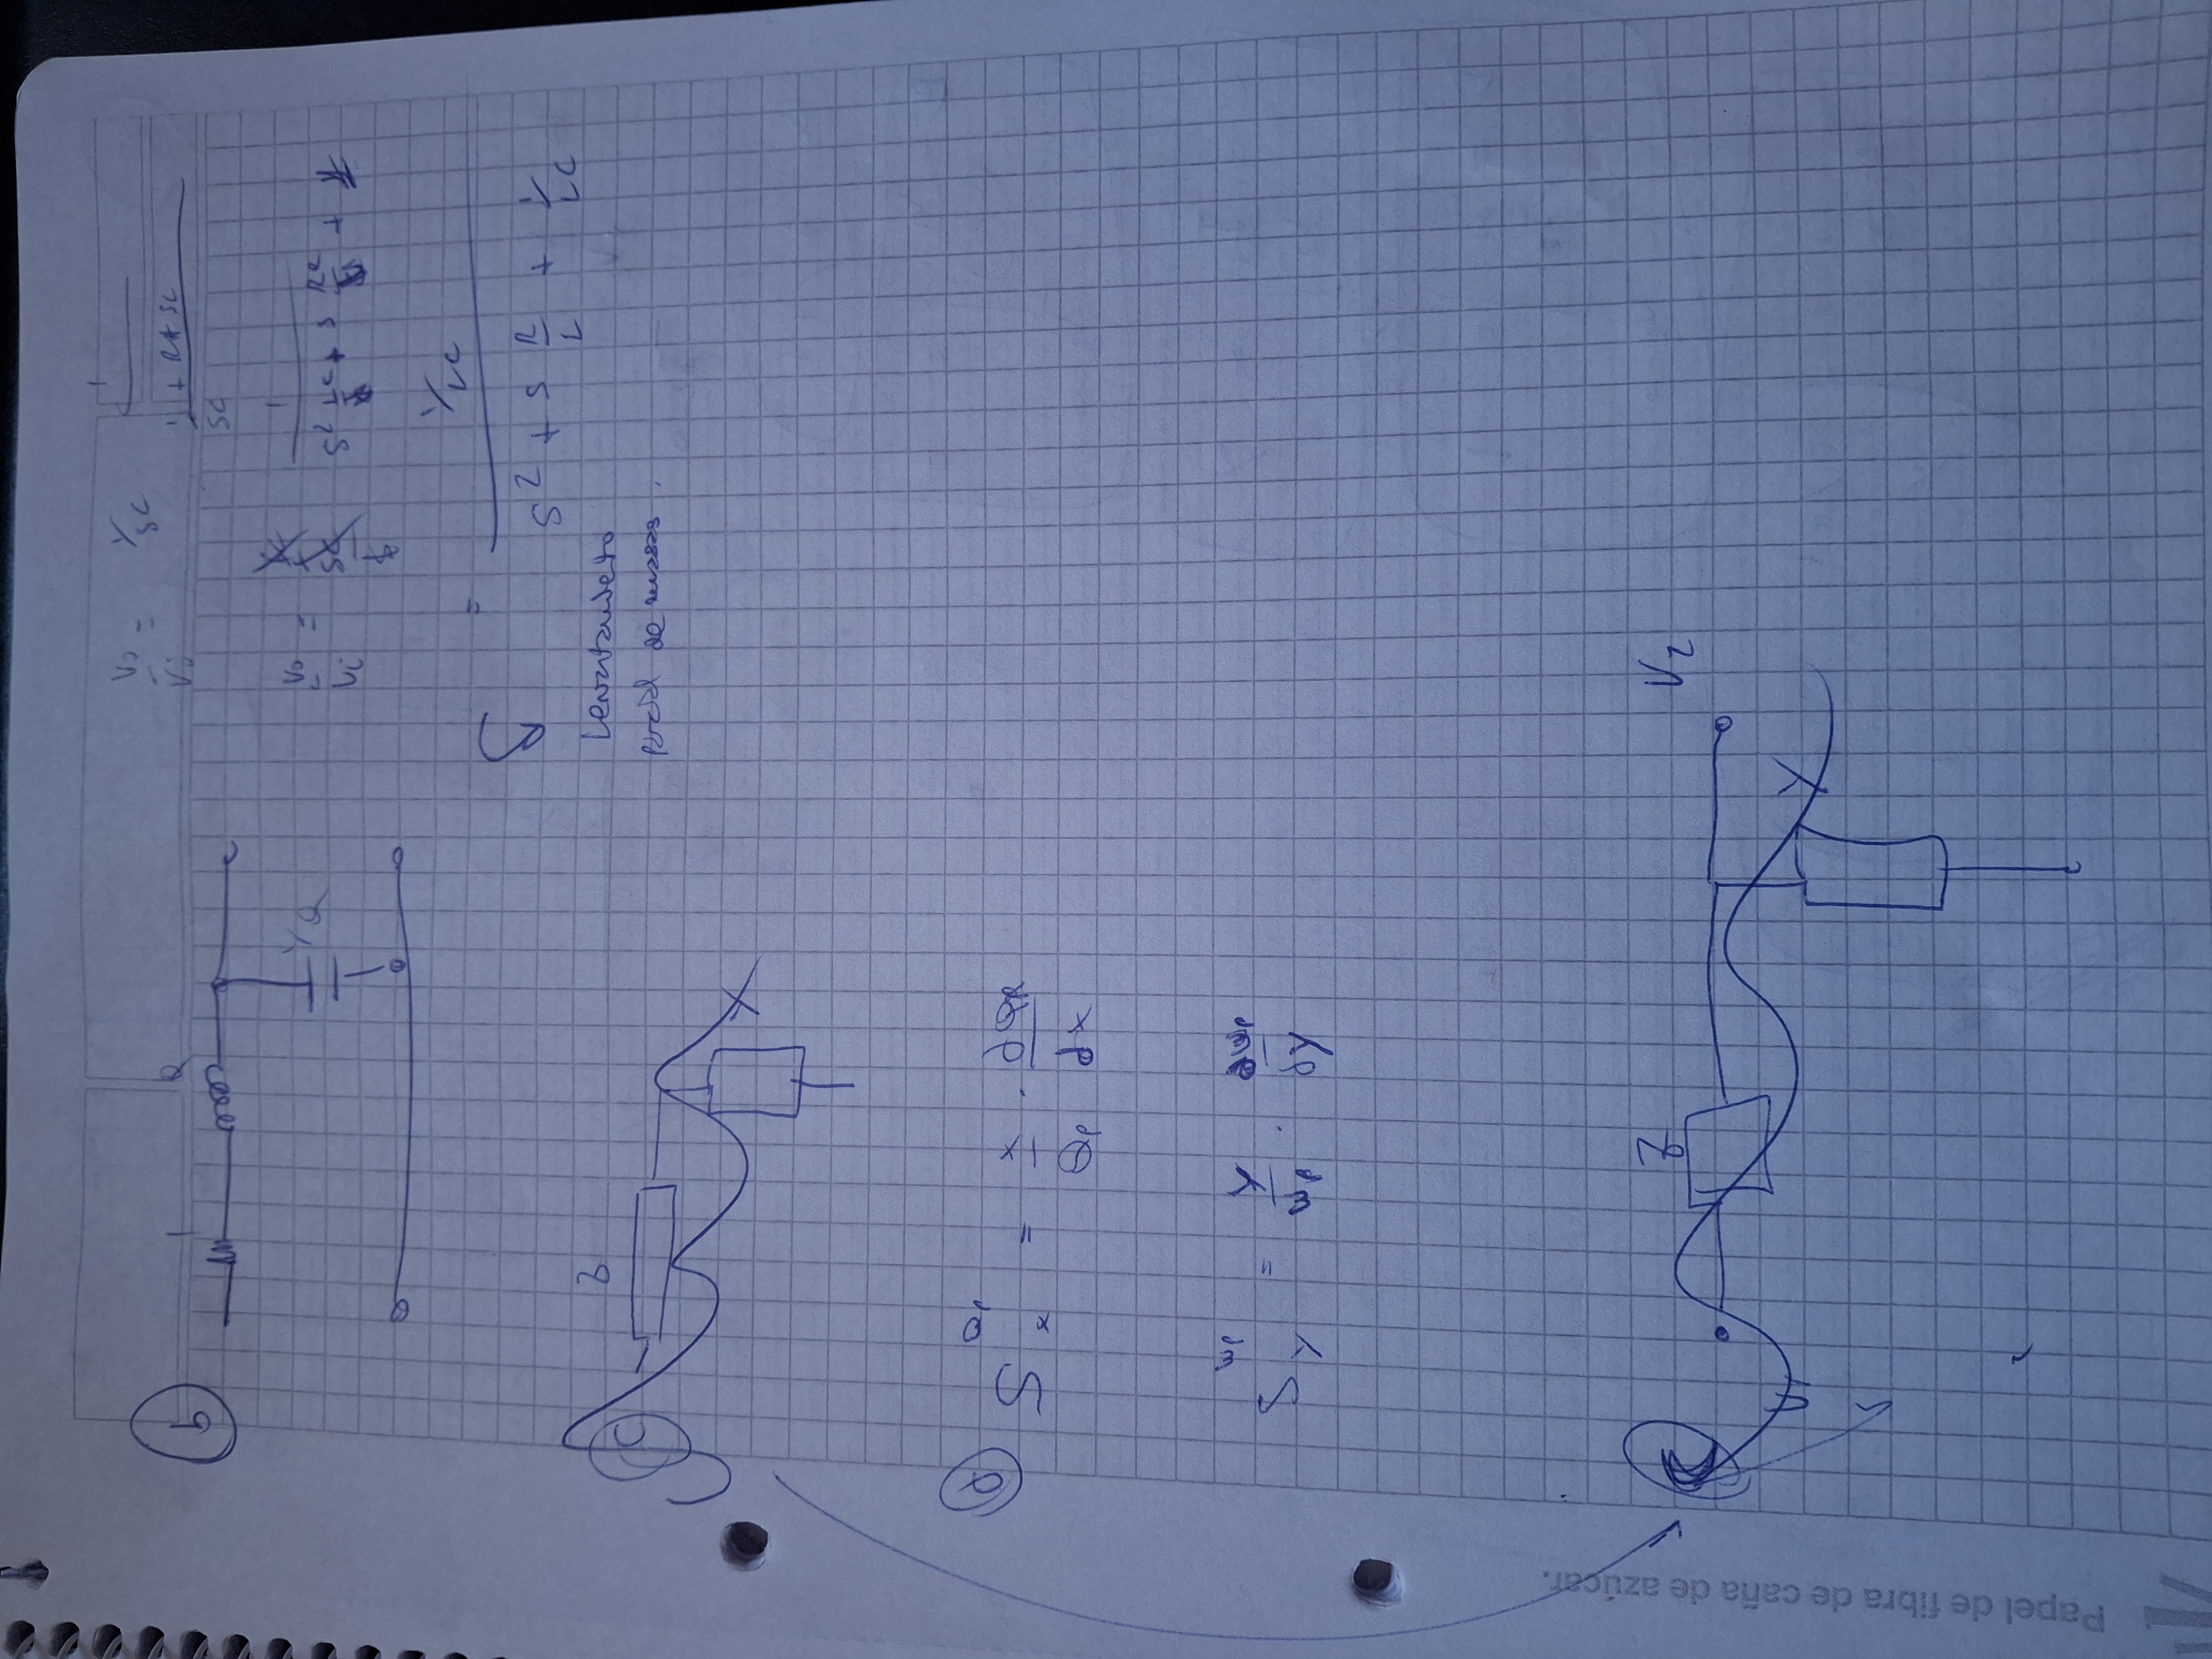 b
1 Q
1/Q
Vo/Vi = 1/SC
1/SC + R + SL
Vo/Vi = 1 / (S² LC + S RC + 1)
= (1/LC) / (S² + S R/L + 1/LC)
Levantamiento
parcial de masas.
C
Z
Y
d
S Qp x = x/Qp · dQp/dx
S wp Y = Y/wp · dwp/dY
C
V1 Z V2
Y
Papel de fibra de caña de azúcar.